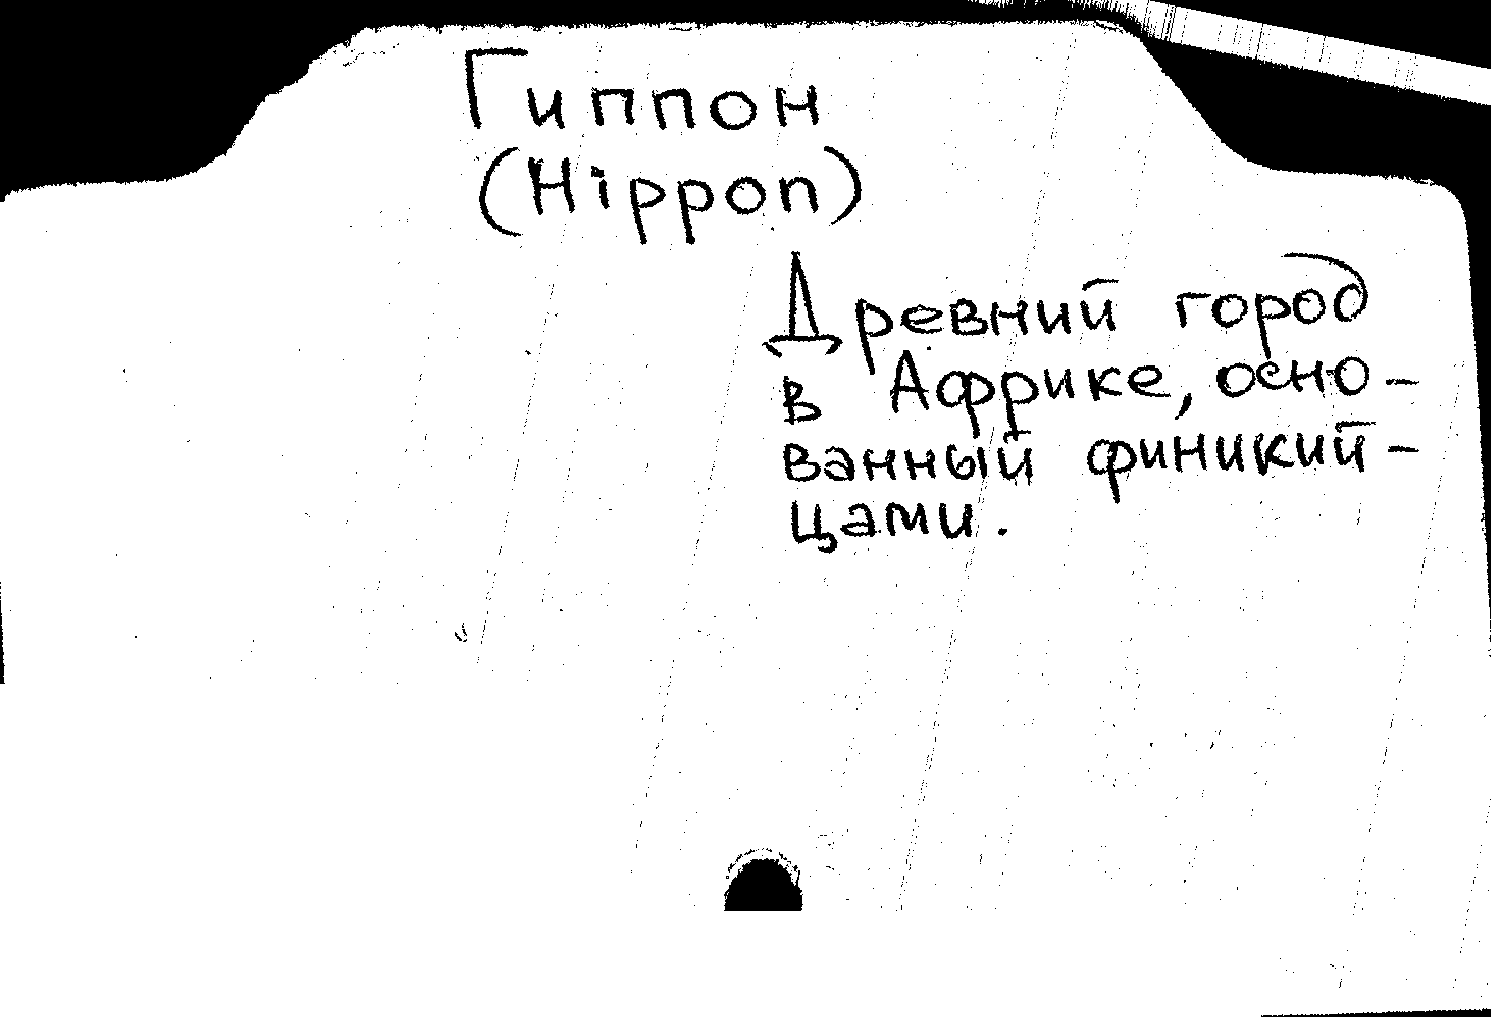 Гиппон
(Hippon)
Древний город
в Африке, осно-
ванный финикий-
цами.